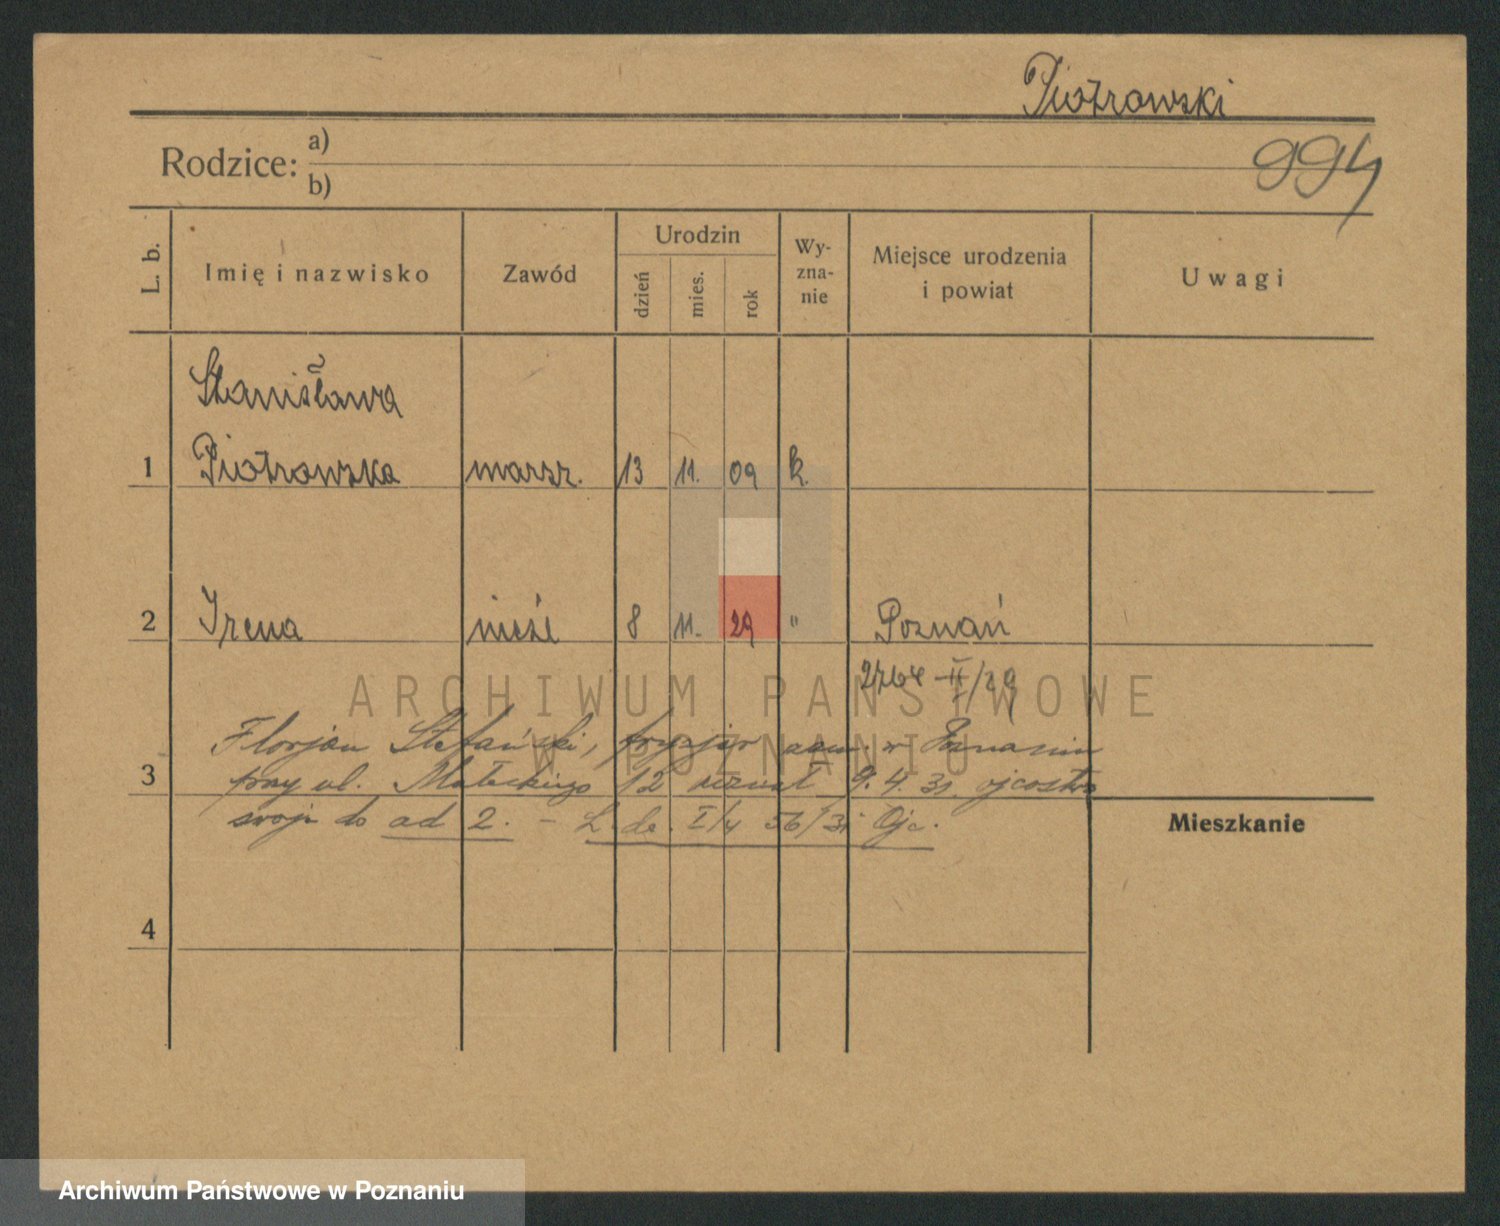 Piotrowski
Rodzice: a)
b)
994
L. b.
Imię i nazwisko
Zawód
Urodzin
dzień
mies.
rok
Wy-
zna-
nie
Miejsce urodzenia
i powiat
Uwagi
Stanisława
1 Piotrowska marsz. 13 11. 09 k.
2 Irena nieśl 8 11. 29 " Poznań
2764 II/29
ARCHIWUM PAŃSTWOWE
W POZNANIU
Florjan Stefański, fryzjer zam. w Poznaniu
3 przy ul. Małeckiego 12 uznał 9. 4. 31. ojcostwo
swoje do ad 2. - L. dz. I/4 56/31 Ojc.
Mieszkanie
4
Archiwum Państwowe w Poznaniu